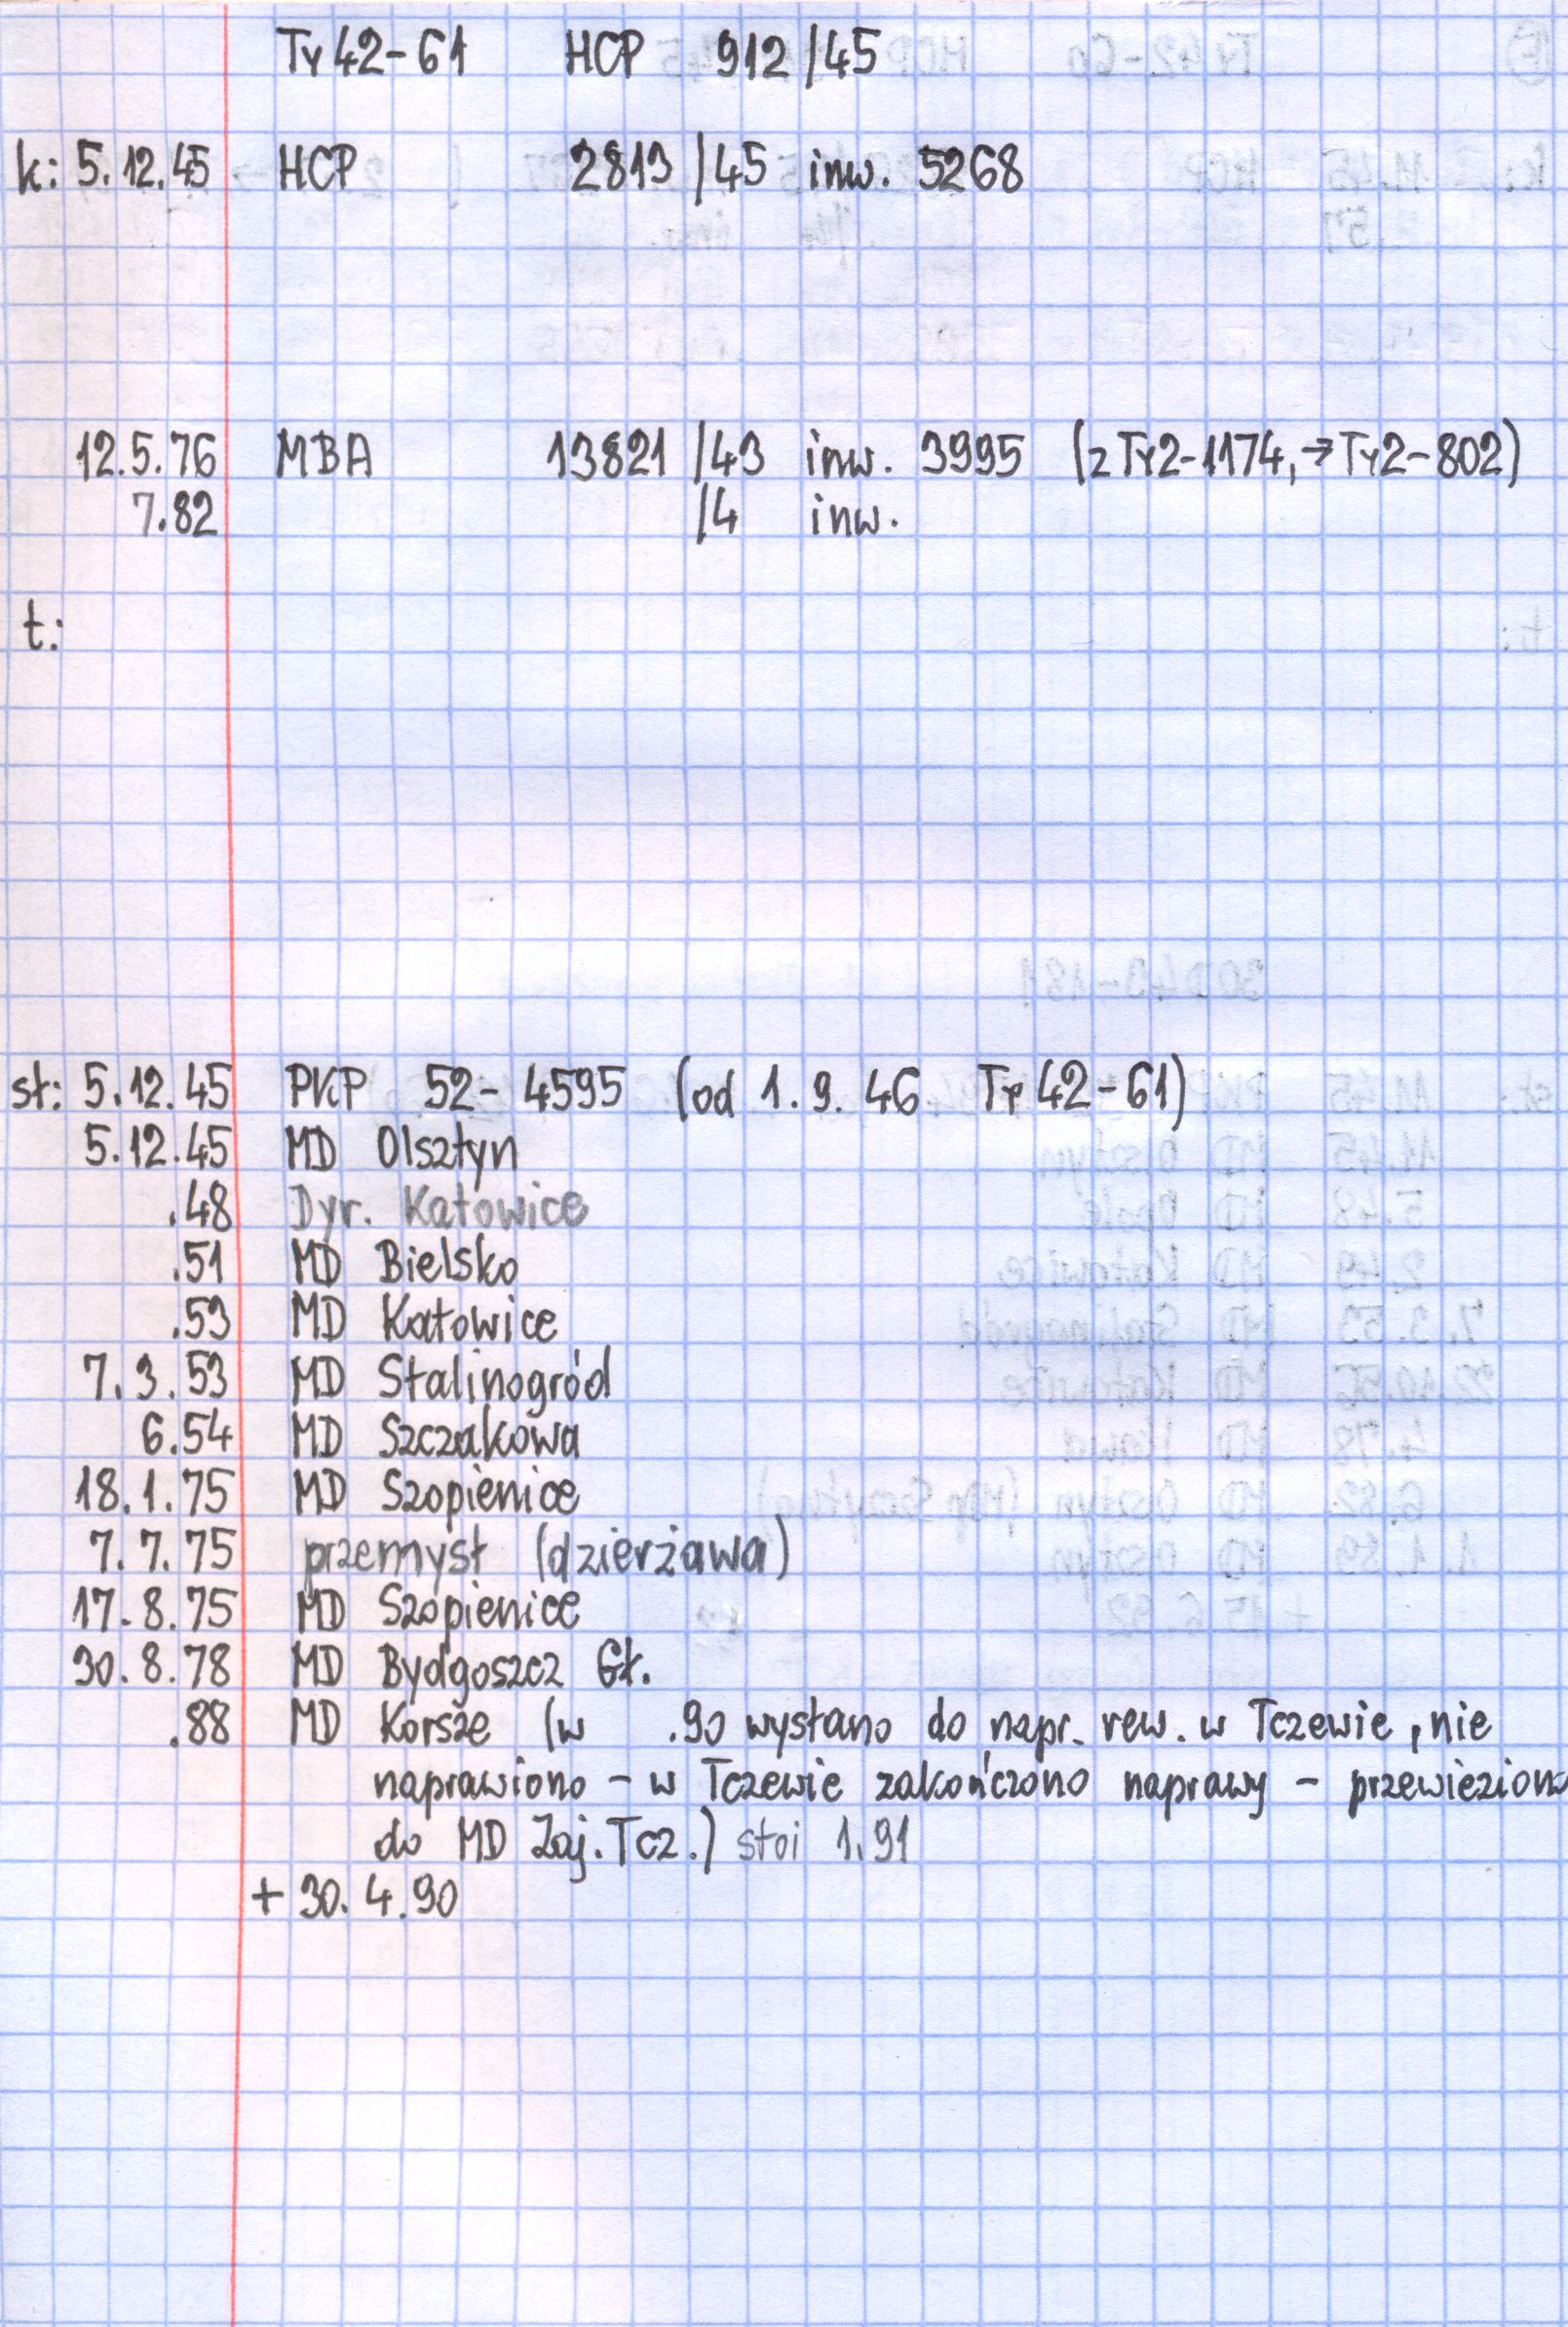 Ty 42-61 HCP 912/45
k: 5.12.45 HCP 2813/45 inw. 5268
12.5.76 MBA 13821/43 inw. 3995 (z Ty2-1174, →Ty2-802)
7.82 /4 inw.
t:
st: 5.12.45 PKP 52-4595 (od 1.9.46 Ty 42-61)
5.12.45 MD Olsztyn
.48 Dyr. Katowice
.51 MD Bielsko
.53 MD Katowice
7.3.53 MD Stalinogród
6.54 MD Szczakowa
18.1.75 MD Szopienice
7.7.75 przemysł (dzierżawa)
17.8.75 MD Szopienice
30.8.78 MD Bydgoszcz Gł.
.88 MD Korsze (w .90 wysłano do napr. rew. w Tczewie, nie
naprawiono - w Tczewie zakończono naprawy - przewieziono
do MD Zaj. Tcz.) stoi 1.91
+ 30.4.90